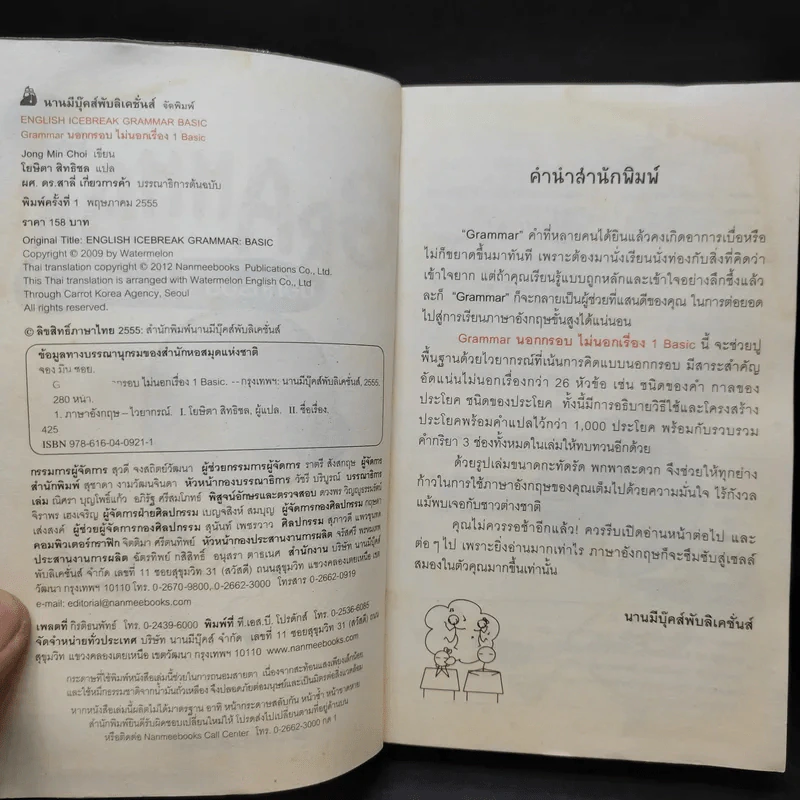 นานมีบุ๊คส์พับลิเคชั่นส์ จัดพิมพ์
ENGLISH ICEBREAK GRAMMAR BASIC
Grammar นอกกรอบ ไม่นอกเรื่อง 1 Basic
Jong Min Choi เขียน
โยษิตา สิทธิชล แปล
ผศ. ดร.สาลี่ เกี่ยวการค้า บรรณาธิการต้นฉบับ
พิมพ์ครั้งที่ 1 พฤษภาคม 2555
ราคา 158 บาท
Original Title: ENGLISH ICEBREAK GRAMMAR: BASIC
Copyright © 2009 by Watermelon
Thai translation copyright © 2012 Nanmeebooks Publications Co., Ltd.
This Thai translation is arranged with Watermelon English Co., Ltd
Through Carrot Korea Agency, Seoul
All rights reserved.
© ลิขสิทธิ์ภาษาไทย 2555: สำนักพิมพ์นานมีบุ๊คส์พับลิเคชั่นส์
ข้อมูลทางบรรณานุกรมของสำนักหอสมุดแห่งชาติ
จอง มิน ชอย.
G กรอบ ไม่นอกเรื่อง 1 Basic. -- กรุงเทพฯ: นานมีบุ๊คส์พับลิเคชั่นส์, 2555.
280 หน้า.
1. ภาษาอังกฤษ–ไวยากรณ์. I. โยษิตา สิทธิชล, ผู้แปล. II. ชื่อเรื่อง.
425
ISBN 978-616-04-0921-1
กรรมการผู้จัดการ สุวดี จงสถิตย์วัฒนา ผู้ช่วยกรรมการผู้จัดการ ราตรี สังสกฤษ ผู้จัดการ
สำนักพิมพ์ สุชาดา งามวัฒนจินดา หัวหน้ากองบรรณาธิการ วัชรี บริบูรณ์ บรรณาธิการ
เล่ม ณิศรา บุญโพธิ์แก้ว อภิรัฐ ศรีสมโภทร์ พิสูจน์อักษรและตรวจสอบ ดวงพร วิญญูธรรมรัตน์
จิราพร เฮงเจริญ ผู้จัดการฝ่ายศิลปกรรม เบญจสิงห์ สมบุญ ผู้จัดการกองศิลปกรรม กฤษดา
เส่งสงค์ ผู้ช่วยผู้จัดการกองศิลปกรรม สุนันท์ เพชรวาว ศิลปกรรม สุภาวดี
คอมพิวเตอร์กราฟิก จิตติมา ศรีตนทิพย์ หัวหน้ากองประสานงานการผลิต จรัสศรี
ประสานงานการผลิต ฉัตรทิพย์ กสิสิทธิ์ อนุสรา ดาธเนศ สำนักงาน บริษัท นานมีบุ๊คส์
พับลิเคชั่นส์ จำกัด เลขที่ 11 ซอยสุขุมวิท 31 (สวัสดี) ถนนสุขุมวิท แขวงคลองเตยเหนือ เขต
วัฒนา กรุงเทพฯ 10110 โทร. 0-2670-9800, 0-2662-3000 โทรสาร 0-2662-0919
e-mail: editorial@nanmeebooks.com
เพลตที่ กิรติธนพัทธ์ โทร. 0-2439-6000 พิมพ์ที่ ที.เอส.บี. โปรดักส์ โทร. 0-2536-6085
จัดจำหน่ายทั่วประเทศ บริษัท นานมีบุ๊คส์ จำกัด เลขที่ 11 ซอยสุขุมวิท 31 (สวัสดี) ถนน
สุขุมวิท แขวงคลองเตยเหนือ เขตวัฒนา กรุงเทพฯ 10110 www.nanmeebooks.com
กระดาษที่ใช้พิมพ์หนังสือเล่มนี้ช่วยในการถนอมสายตา เนื่องจากสะท้อนแสงเพียงเล็กน้อย
และใช้หมึกธรรมชาติจากน้ำมันถั่วเหลือง จึงปลอดภัยต่อมนุษย์และเป็นมิตรต่อสิ่งแวดล้อม
หากหนังสือเล่มนี้ผลิตไม่ได้มาตรฐาน อาทิ หน้ากระดาษสลับกัน หน้าซ้ำ หน้าขาดหาย
สำนักพิมพ์ยินดีรับผิดชอบเปลี่ยนใหม่ให้ โปรดส่งไปเปลี่ยนตามที่อยู่ด้านบน
หรือติดต่อ Nanmeebooks Call Center โทร. 0-2662-3000 กด 1
คำนำสำนักพิมพ์
"Grammar" คำที่หลายคนได้ยินแล้วคงเกิดอาการเบื่อหรือ
ไม่ก็ขยาดขึ้นมาทันที เพราะต้องมานั่งเรียนนั่งท่องกับสิ่งที่คิดว่า
เข้าใจยาก แต่ถ้าคุณเรียนรู้แบบถูกหลักและเข้าใจอย่างลึกซึ้งแล้ว
ละก็ "Grammar" ก็จะกลายเป็นผู้ช่วยที่แสนดีของคุณ ในการต่อยอด
ไปสู่การเรียนภาษาอังกฤษขั้นสูงได้แน่นอน
Grammar นอกกรอบ ไม่นอกเรื่อง 1 Basic นี้ จะช่วยปู
พื้นฐานด้วยไวยากรณ์ที่เน้นการคิดแบบนอกกรอบ มีสาระสำคัญ
อัดแน่นไม่นอกเรื่องกว่า 26 หัวข้อ เช่น ชนิดของคำ กาลของ
ประโยค ชนิดของประโยค ทั้งนี้มีการอธิบายวิธีใช้และโครงสร้าง
ประโยคพร้อมคำแปลไว้กว่า 1,000 ประโยค พร้อมกับรวบรวม
คำกริยา 3 ช่องทั้งหมดในเล่มให้ทบทวนอีกด้วย
ด้วยรูปเล่มขนาดกะทัดรัด พกพาสะดวก จึงช่วยให้ทุกย่าง
ก้าวในการใช้ภาษาอังกฤษของคุณเต็มไปด้วยความมั่นใจ ไร้กังวล
แม้พบเจอกับชาวต่างชาติ
คุณไม่ควรรอช้าอีกแล้ว! ควรรีบเปิดอ่านหน้าต่อไป และ
ต่อๆ ไป เพราะยิ่งอ่านมากเท่าไร ภาษาอังกฤษก็จะซึมซับสู่เซลล์
สมองในตัวคุณมากขึ้นเท่านั้น
นานมีบุ๊คส์พับลิเคชั่นส์